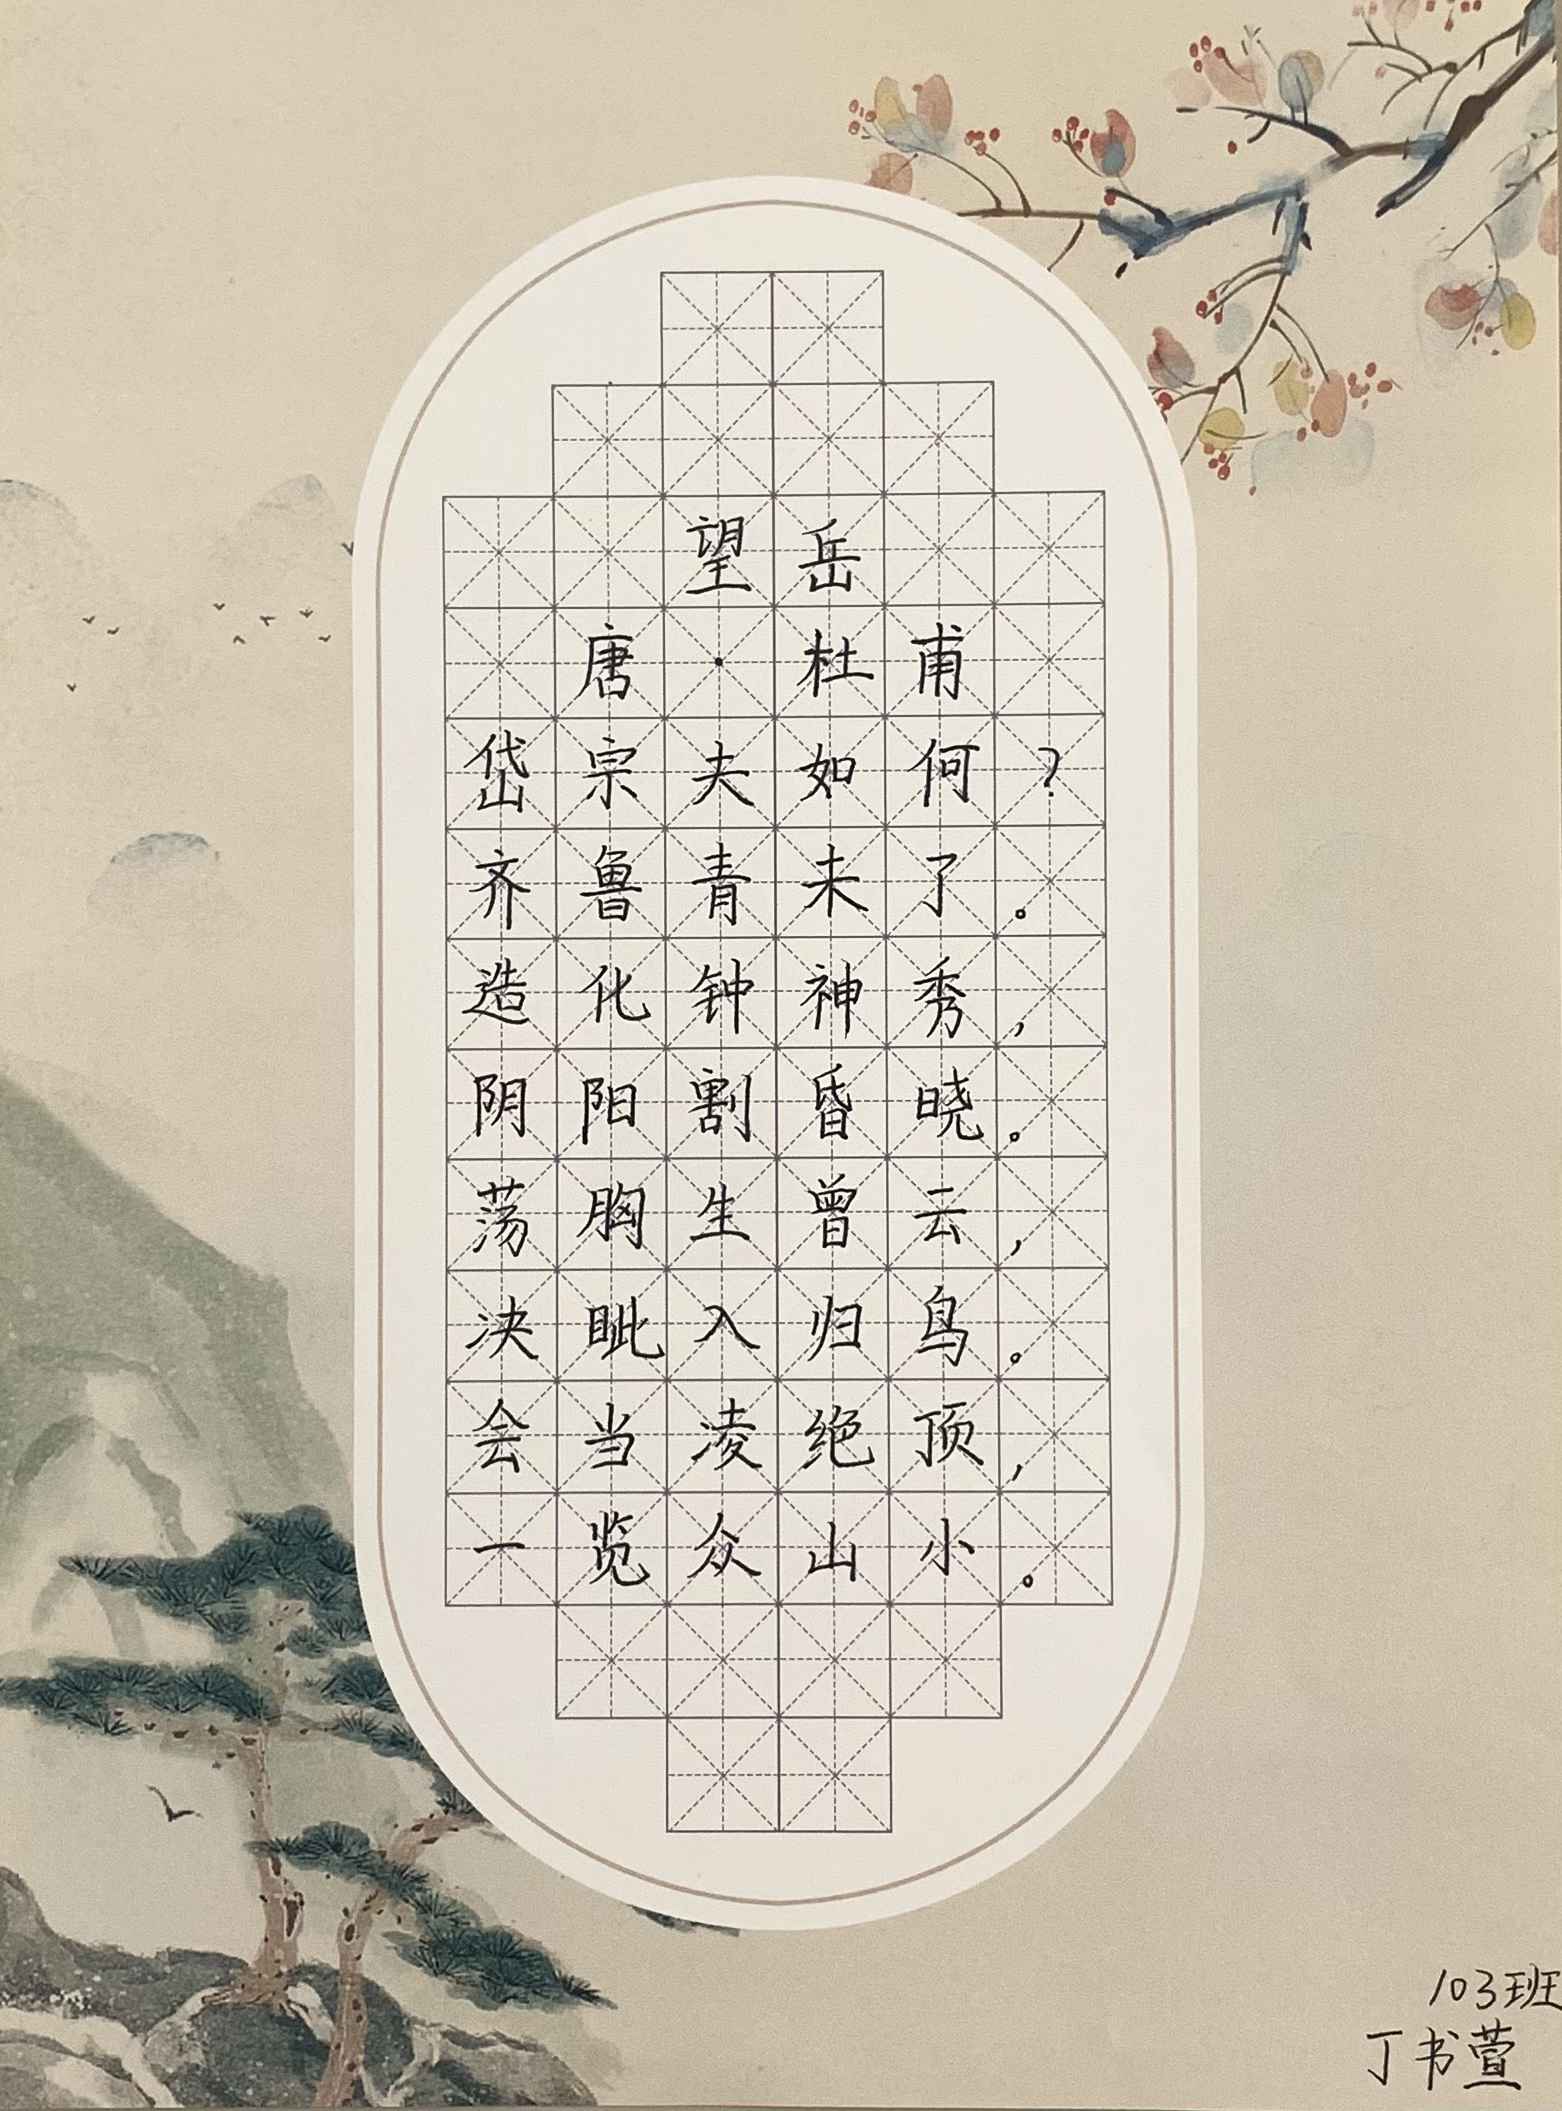 望岳
唐·杜甫
岱宗夫如何?
齐鲁青未了。
造化钟神秀,
阴阳割昏晓。
荡胸生曾云,
决眦入归鸟。
会当凌绝顶,
一览众山小。
103班
丁书萱